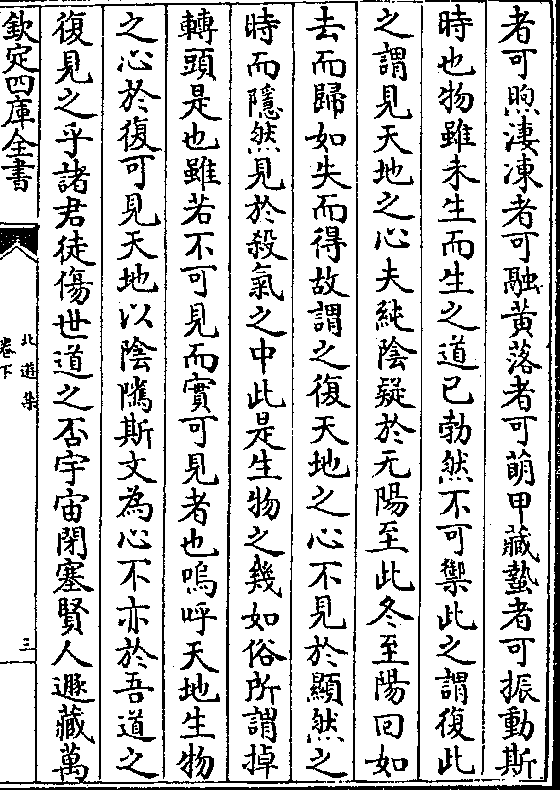 者可煦淒凍者可融黄落者可萌甲藏蟄者可振動斯
時也物雖未生而生之道已勃然不可禦此之謂復此
之謂見天地之心夫純陰疑於无陽至此冬至陽回如
去而歸如失而得故謂之復天地之心不見於顯然之
時而隱然見於殺氣之中此是生物之幾如俗所謂掉
轉頭是也雖若不可見而實可見者也嗚呼天地生物
之心於復可見天地以陰隲斯文為心不亦於吾道之
復見之乎諸君徒傷世道之否宇宙閉塞賢人遯藏萬
欽定四庫全書
北遊集
卷下
三